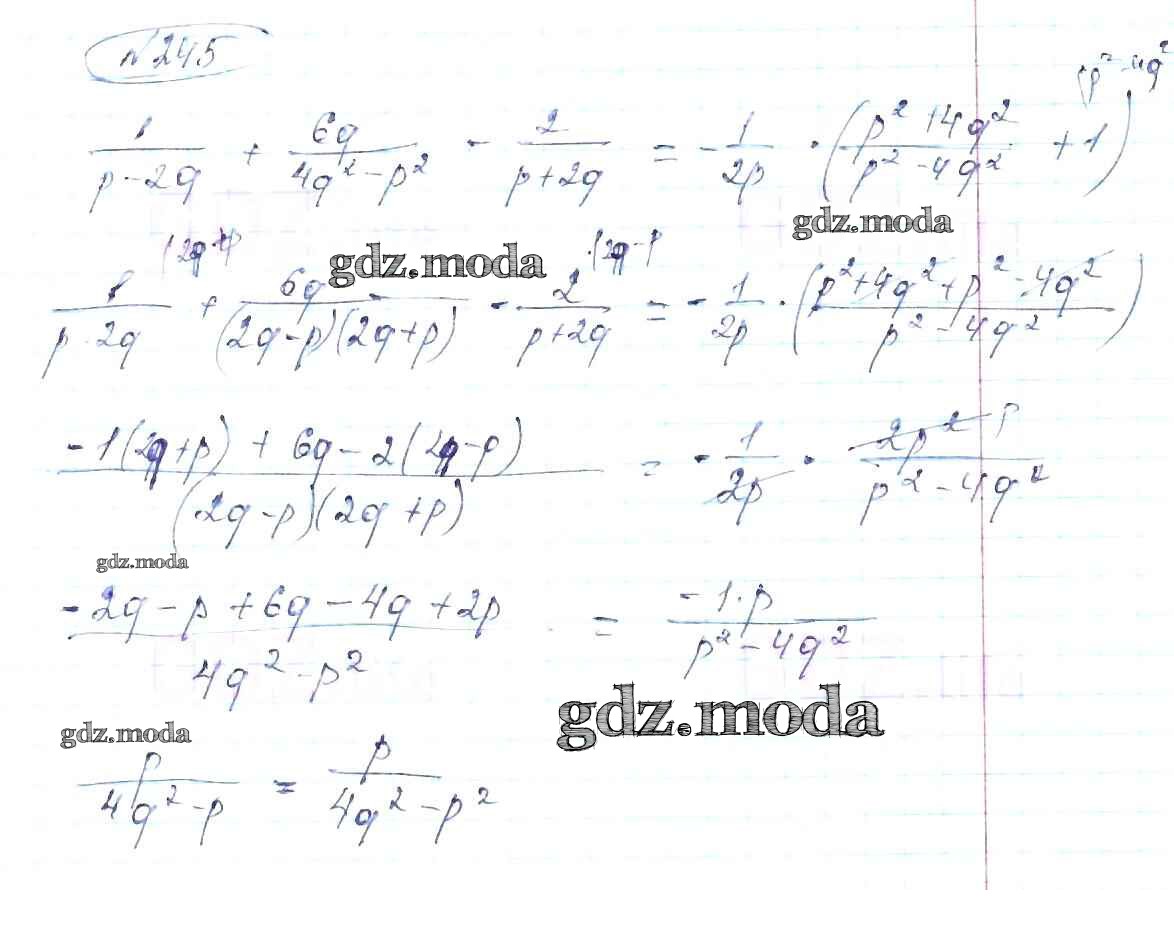 №245
1/(p - 2q) + 6q/(4q² - p²) - 2/(p + 2q) = - 1/2p · ((p² + 4q²)/(p² - 4q²) + 1) (p² - 4q²
gdz.moda
(2q + p gdz.moda (2q - p
1/(p - 2q) + 6q/((2q - p)(2q + p)) - 2/(p + 2q) = - 1/2p · ((p² + 4q² + p² - 4q²)/(p² - 4q²))
(-1(2q + p) + 6q - 2(2q - p))/((2q - p)(2q + p)) = - 1/2p · 2p² p/(p² - 4q²)
gdz.moda
(-2q - p + 6q - 4q + 2p)/(4q² - p²) = (-1·p)/(p² - 4q²)
gdz.moda
gdz.moda
p/(4q² - p) = p/(4q² - p²)